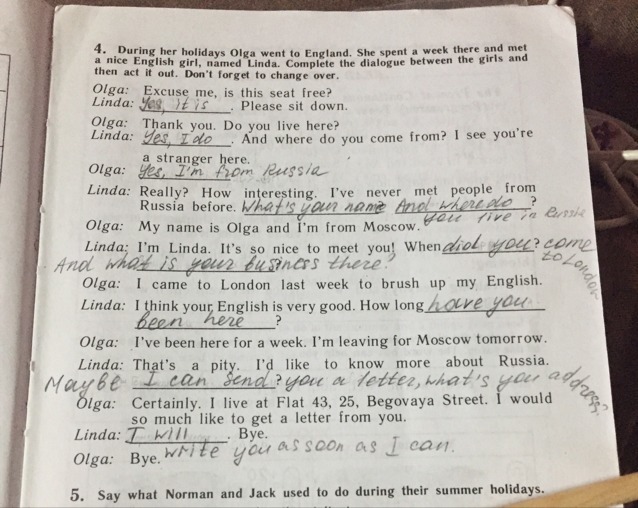 4. During her holidays Olga went to England. She spent a week there and met
a nice English girl, named Linda. Complete the dialogue between the girls and
then act it out. Don't forget to change over.
Olga: Excuse me, is this seat free?
Linda: Yes, it is. Please sit down.
Olga: Thank you. Do you live here?
Linda: Yes, I do. And where do you come from? I see you're
a stranger here.
Olga: Yes, I'm from Russia
Linda: Really? How interesting. I've never met people from
Russia before. What's your name And where do ?
you live in Russia
Olga: My name is Olga and I'm from Moscow.
Linda: I'm Linda. It's so nice to meet you! When did you? come
to London
And what is your business there?
Olga: I came to London last week to brush up my English.
Linda: I think your English is very good. How long have you
been here ?
Olga: I've been here for a week. I'm leaving for Moscow tomorrow.
Linda: That's a pity. I'd like to know more about Russia.
Maybe I can send? you a letter, what's you address?
Olga: Certainly. I live at Flat 43, 25, Begovaya Street. I would
so much like to get a letter from you.
Linda: I will. Bye.
write you as soon as I can.
Olga: Bye.
5. Say what Norman and Jack used to do during their summer holidays.